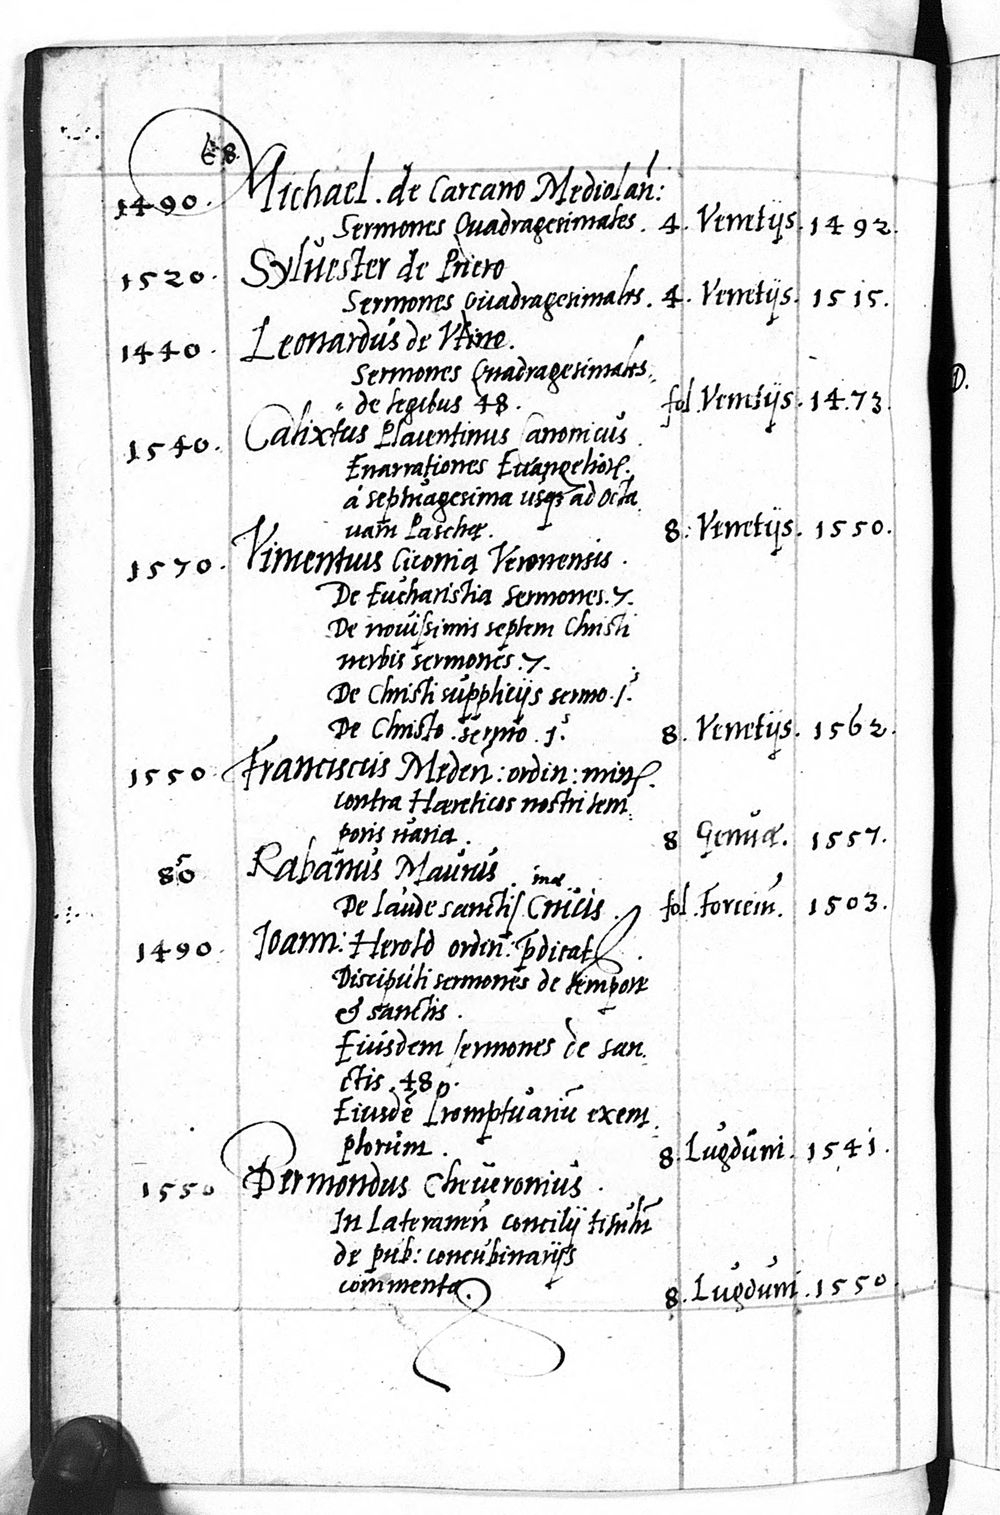 68.
1490. Michael. de Carcano Mediolañ:
Sermones Quadragesimales. 4. Venetijs. 1492.
1520. Sylvester de Priero
Sermones Quadragesimales. 4. Venetijs. 1515.
1440. Leonardus de Vtino.
Sermones Quadragesimales.
de legibus 48. fol. Venetijs. 1473.
1540. Calixtus Placentinus Canonicus.
Enarrationes Euangelior.
á septuagesima usq₃ ad octa
uam̃ Paschę. 8. Venetijs. 1550.
1570. Vincentius Ciconia Veronensis.
De Eucharistia Sermones. 7.
De nouissimis septem Christi
uerbis sermones. 7.
De Christi supplicijs sermo. 1.
De Christo. sermo. 1. 8. Venetijs. 1562.
1550 Franciscus Medeñ: ordin: min.
contra Hæreticos nostri tem
poris uaria. 8 Genuæ. 1557.
850 Rabanus Maurus
De laude sanctiss Crucis. fol. 1503.
1490. Joann: Herold ordiñ: p̃dicat.
Discipuli sermones de tempore
& sanctis.
Eiusdem sermones de san
ctis. 48.
Eiusdẽ Promptuariũ exem
plorum. 8. Lugduni. 1541.
1550 Bermondus Cheueronius.
In Lateraneñ concilij titulũ
de pub: concubinarijs
commenta. 8. Lugduni. 1550.
D.